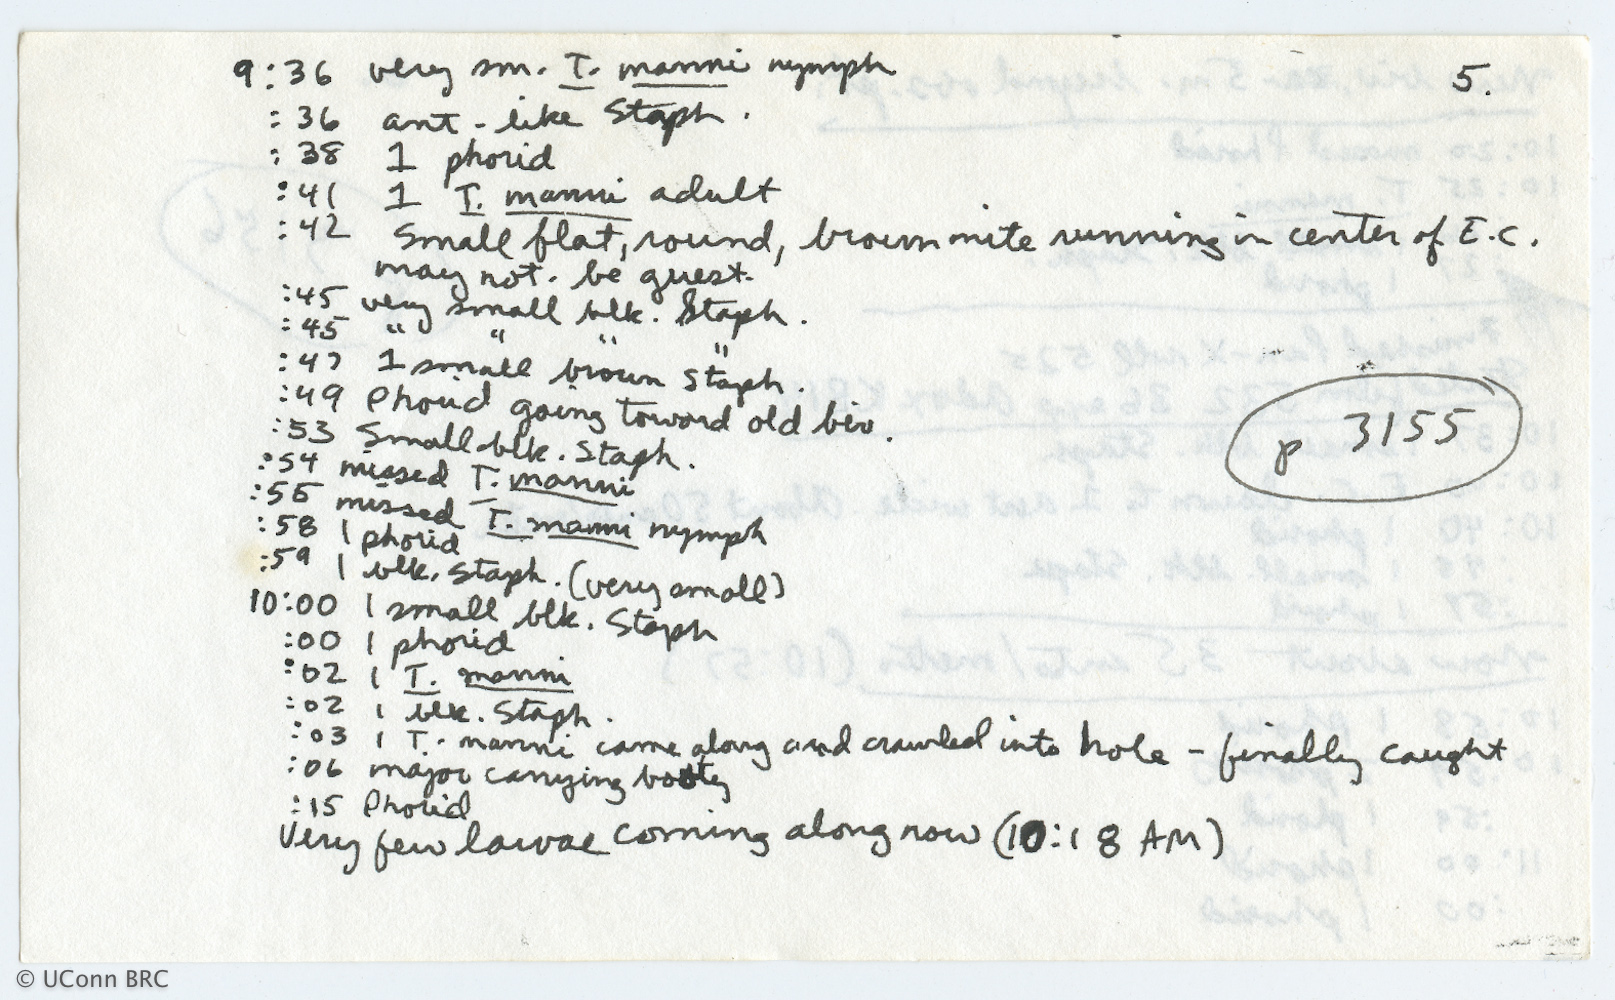 5.
9:36 very sm. T. manni nymph
:36 ant-like Staph.
:38 1 phorid
:41 1 T. manni adult
:42 small flat, round, brown mite running in center of E.C.
may not. be guest.
:45 very small blk. Staph.
:45 " " " "
:47 1 small brown Staph.
:49 Phorid going toward old biv.
:53 Small blk. Staph.
:54 missed T. manni
:55 missed T. manni nymph
:58 1 phorid
:59 1 blk. Staph. (very small)
10:00 1 small blk. Staph
:00 1 phorid
:02 1 T. manni
:02 1 blk. Staph.
:03 1 T. manni came along and crawled into hole - finally caught
:06 major carrying booty
:15 Phorid
Very few larvae coming along now (10:18 AM)
p 3155
© UConn BRC